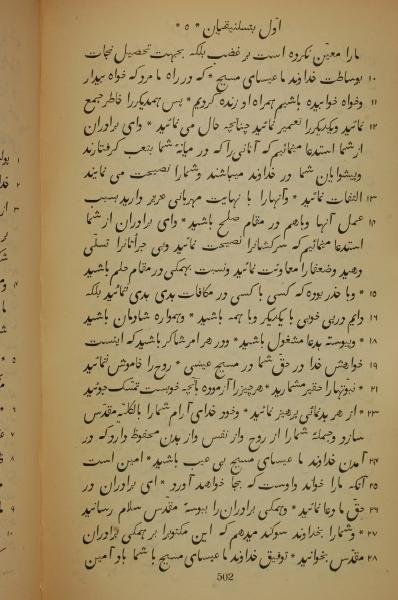 اوّل بتسلنیقیان * ٥ *
مارا معیّن نکرده است بر غضب بلکه بجهت تحصیل نجات
١٠ بوساطت خداوند ما عیسای مسیح * که در راه ما مرد که خواه بیدار
١١ وخواه خوابیده باشیم همراه او زنده گردیم * پس همدیگررا خاطر جمع
١٢ نمائید ویکدیگررا تعمیر نمائید چنانچه حال می نمائید * وای برادران
از شما استدعا مینمائیم که آنانی را که در میانهٔ شما بتعب گرفتارند
وپیشوایان شما در خداوند میباشند وشمارا نصیحت می نمایند
١٣ التفات نمائید * وآنهارا با نهایت مهربانی عزیز دارید بسبب
١٤ عمل آنها وباهم در مقام صلح باشید * وای برادران از شما
استدعا مینمائیم که سرکشانرا نصیحت نمائید وبی جرأتانرا تسلّی
دهید وضعفارا معاونت نمائید ونسبت بهمگی در مقام حلم باشید
١٥ * وبا حذر بوده که کسی با کسی در مکافات بدی بدی ننمائید بلکه
١٦ دایم در پی خوبی با یکدیگر وبا همه باشید * وهمواره شادمان باشید
١٨ * وپیوسته بدعا مشغول باشید * ودر هر امر شاکر باشید که اینست
١٩ خواهش خدا در حقّ شما در مسیح عیسی * روح را خاموش ننمائید
٢١ * نبوّتهارا حقیر مشمارید * هر چیزرا آزموده بآنچه خوبست تمسّک جوئید
٢٣ * از هر بدنمائی پرهیز نمائید * وخود خدای آرام شمارا بالکلّیه مقدّس
سازد وجملهٔ شمارا از روح واز نفس واز بدن محفوظ دارد که در
٢٤ آمدن خداوند ما عیسای مسیح بی عیب باشید * امین است
٢٥ آنکه مارا خواند واوست که بجا خواهد آورد * ای برادران در
٢٦ حقّ ما دعا نمائید * وهمگی برادران را ببوسهٔ مقدّس سلام رسانید
٢٧ * وشمارا بخداوند سوگند میدهم که این مکتوبرا بر همگی برادران
٢٨ مقدّس بخوانید * توفیق خداوند ما عیسای مسیح با شما باد آمین
502